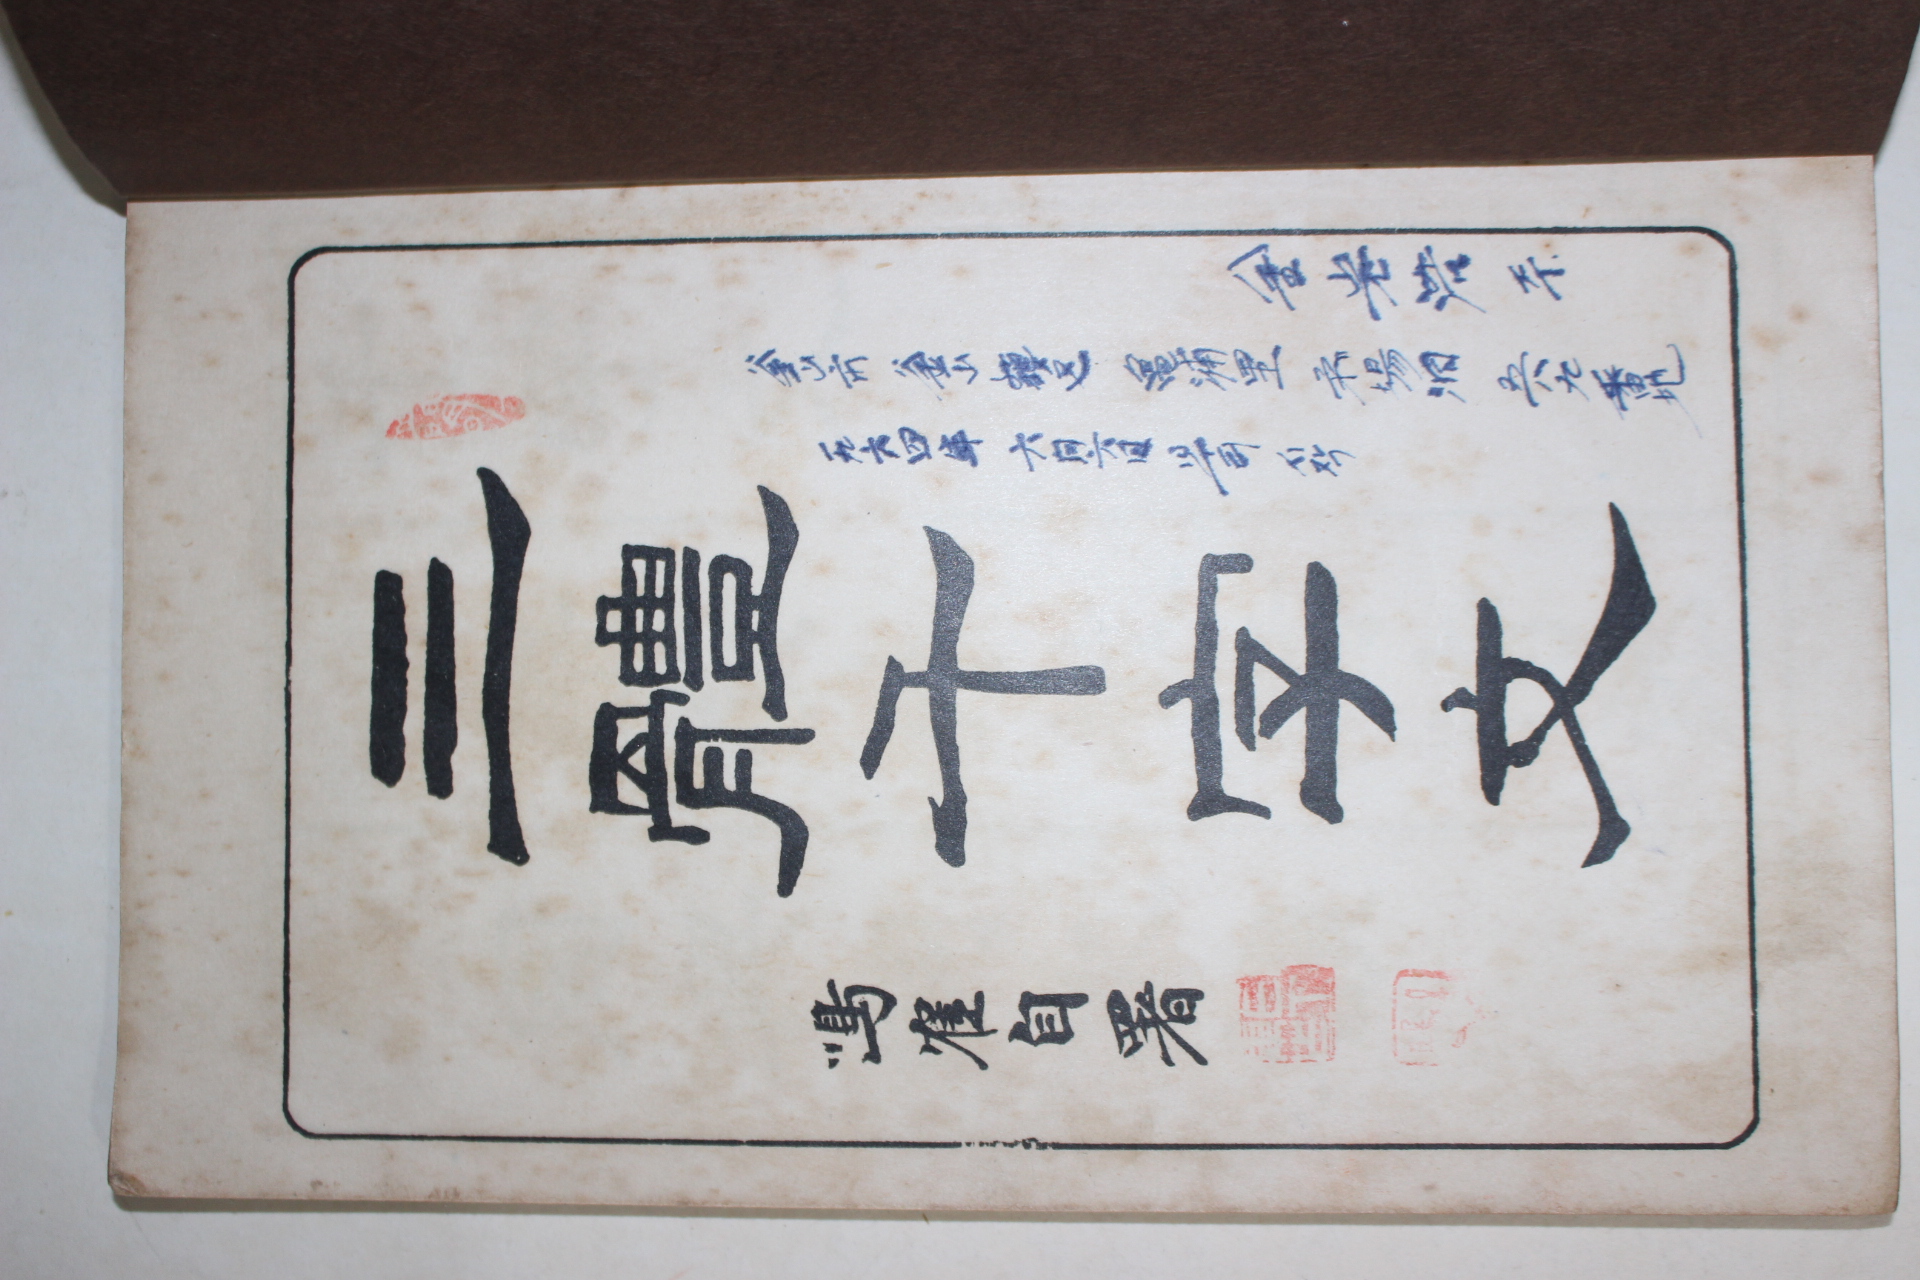 金光浩 不
釜山市 釜山鎭區 龜浦里 市場洞 五六九番地
一九六四年 六月六日 早司 시작
三體千字文
鳴隺自署